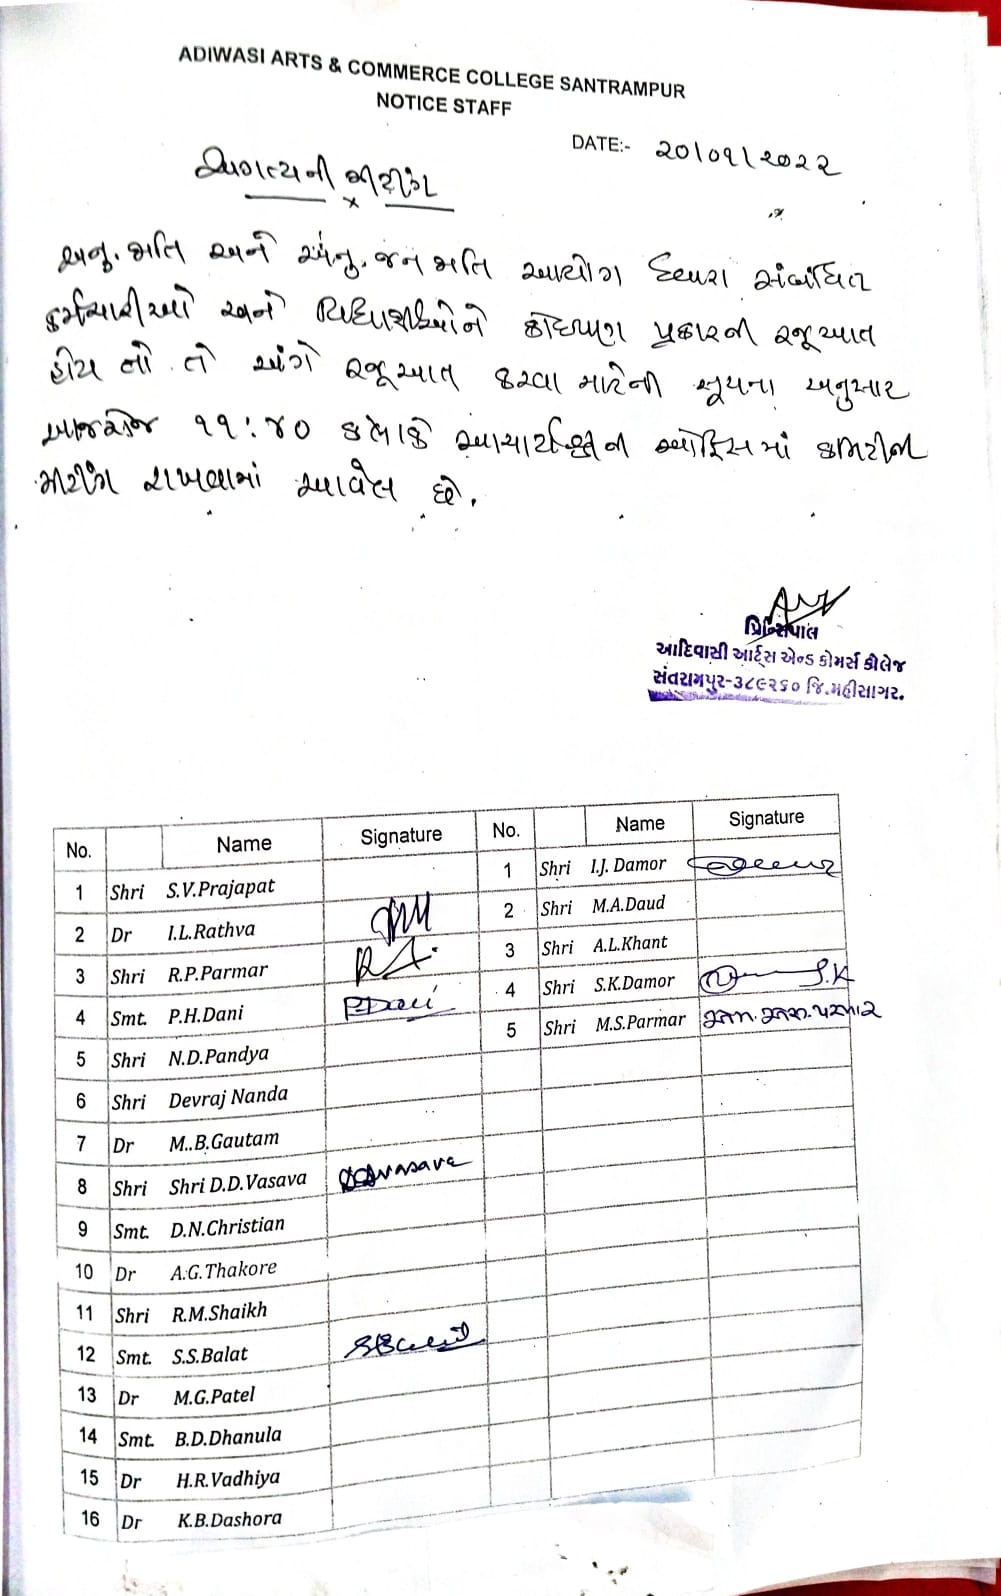 ADIWASI ARTS & COMMERCE COLLEGE SANTRAMPUR
NOTICE STAFF
DATE:- 20/09/2022
અગત્યની મીટીંગ
અનુ. જાતિ અને અનુ. જન જાતિ આયોગ દ્વારા સંબંધિત
કર્મચારીઓ અને વિદ્યાર્થીઓને કોઈપણ પ્રકારની રજૂઆત
હોય તો તે અંગે રજૂઆત કરવા માટેની સૂચના અનુસાર
આજરોજ ૧૧:૪૦ કલાકે આચાર્યશ્રીની ઓફિસમાં કમિટીની
મીટીંગ રાખવામાં આવેલ છે.
પ્રિન્સિપાલ
આદિવાસી આર્ટ્સ એન્ડ કોમર્સ કોલેજ
સંતરામપુર-૩૮૯૨૬૦ જિ.મહીસાગર.
No. Name Signature No. Name Signature
1 Shri S.V.Prajapat 1 Shri I.J. Damor
2 Dr I.L.Rathva 2 Shri M.A.Daud
3 Shri R.P.Parmar 3 Shri A.L.Khant
4 Smt. P.H.Dani PDani 4 Shri S.K.Damor S.K
5 Shri N.D.Pandya 5 Shri M.S.Parmar એમ. એસ. પરમાર
6 Shri Devraj Nanda
7 Dr M..B.Gautam
8 Shri Shri D.D.Vasava DDVasava
9 Smt. D.N.Christian
10 Dr A.G.Thakore
11 Shri R.M.Shaikh
12 Smt. S.S.Balat
13 Dr M.G.Patel
14 Smt. B.D.Dhanula
15 Dr H.R.Vadhiya
16 Dr K.B.Dashora